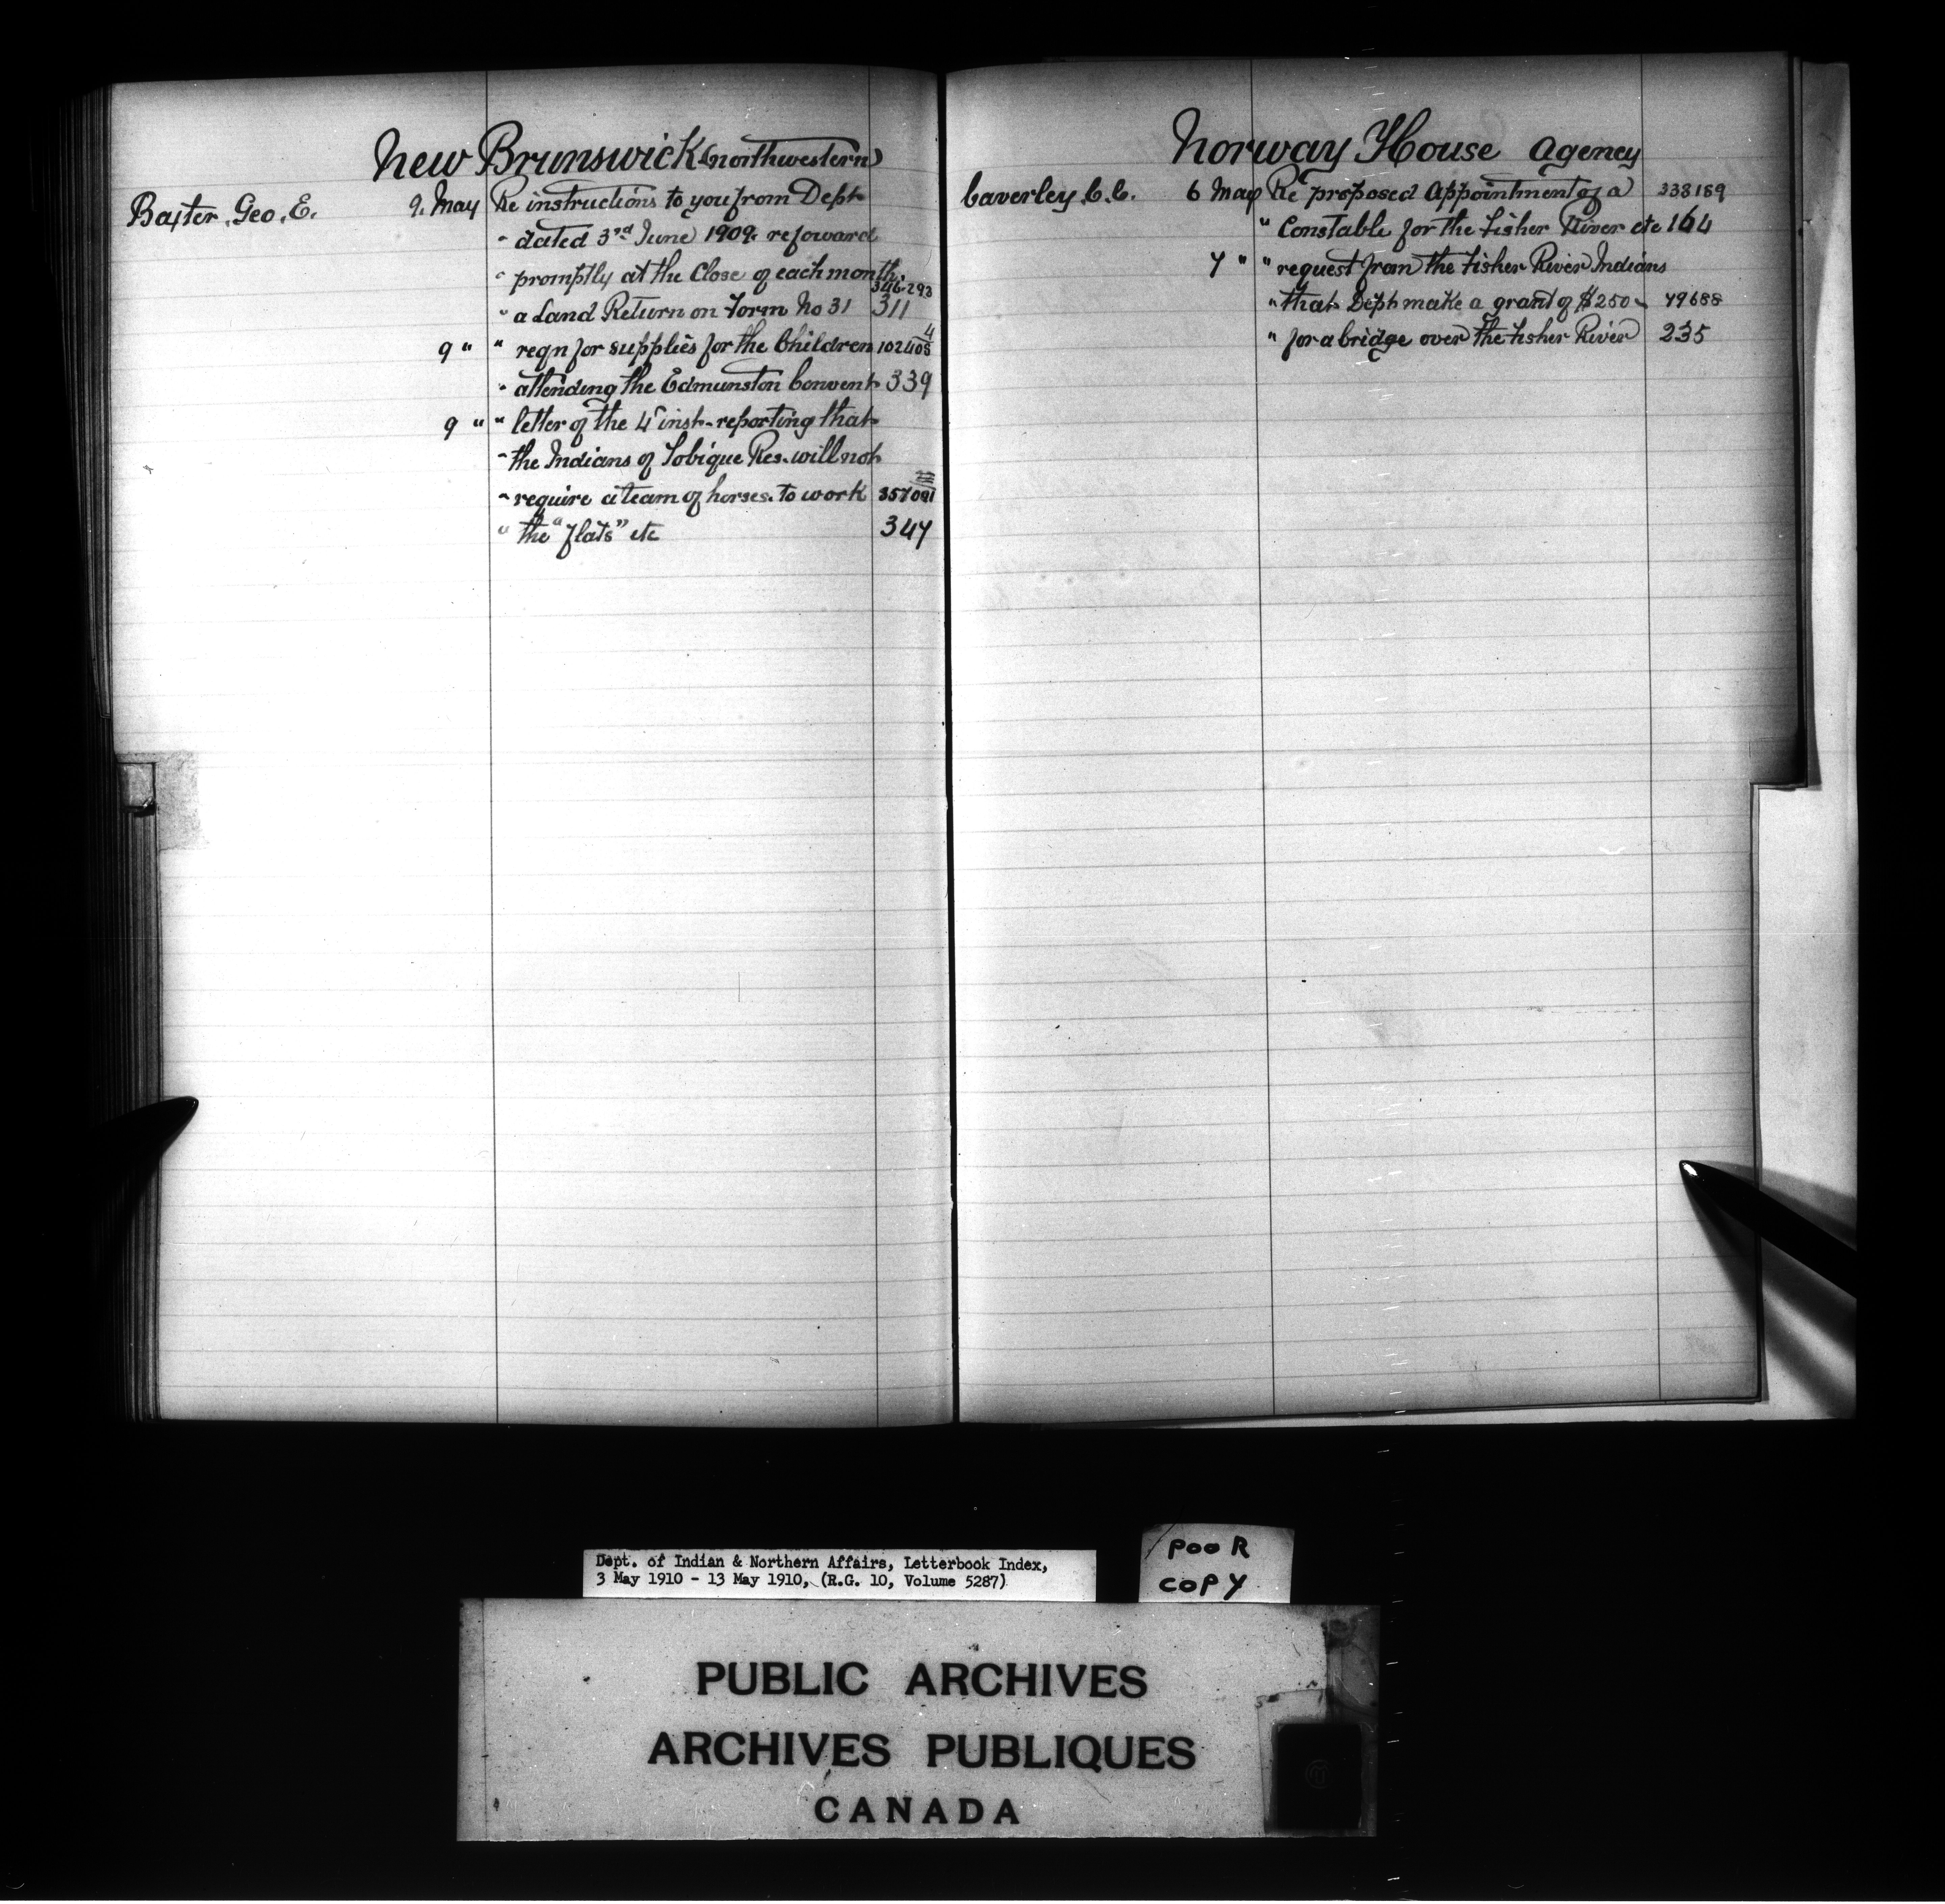 New Brunswick (northwestern)
Baxter, Geo. E. 9. May Re instructions to you from Dept
" dated 3rd June 1909. re foward
" promptly at the Close of each month.
346.293
" a Land Return on Form No 31 311
4
9 " " reqn for supplies for the Children 102405
" attending the Edmunston Convent 339
9 " " letter of the 4" inst. reporting that
" the Indians of Tobique Res. will not
" require a team of horses. to work 357091
" the "flats" etc 347
Norway House Agency
Caverley, C.C. 6 May Re proposed Appointment of a 338189
" Constable for the Fisher River etc 164
7 " " request from the Fisher River Indians
" that Dept make a grant of $250 - 79688
" for a bridge over the Fisher River 235
Dept. of Indian & Northern Affairs, Letterbook Index,
3 May 1910 - 13 May 1910, (R.G. 10, Volume 5287)
POOR
COPY
PUBLIC ARCHIVES
ARCHIVES PUBLIQUES
CANADA